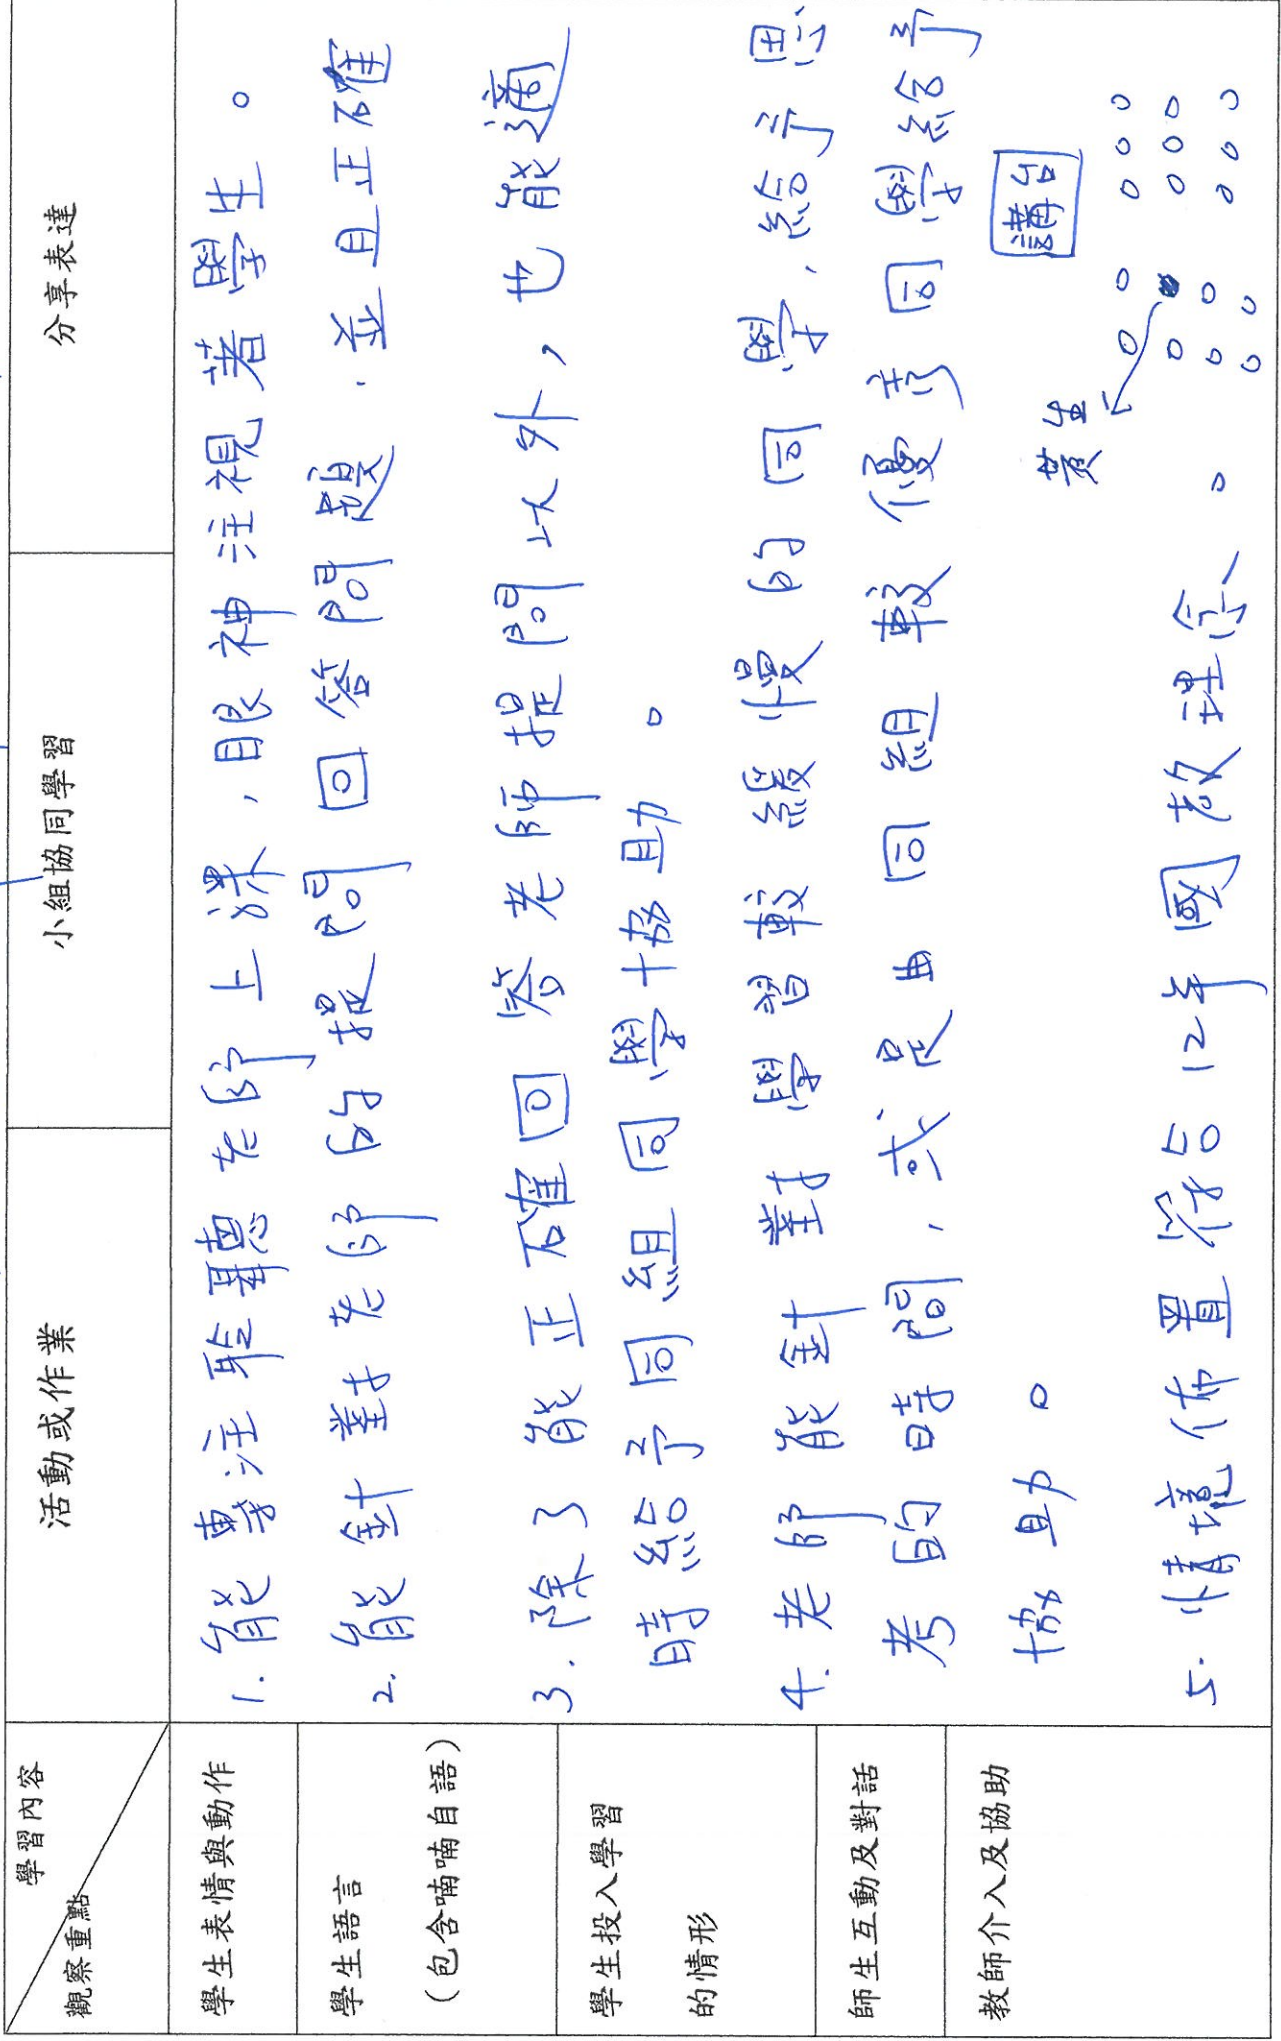 學習內容
觀察重點
活動或作業
小組協同學習
分享表達
學生表情與動作
學生語言
(包含喃喃自語)
學生投入學習
的情形
師生互動及對話
教師介入及協助
1. 能專注聆聽老師上課，眼神注視著學生。
2. 能針對老師的提問回答問題，並且正確
3. 除了能正確回答老師提問以外，也能適
時給予同組同學協助。
4. 老師能針對學習較緩慢的同學，給予思
考的時間，或是由同組較優秀同學給予
協助。
講台
5. 情境佈置符合12年國教理念。